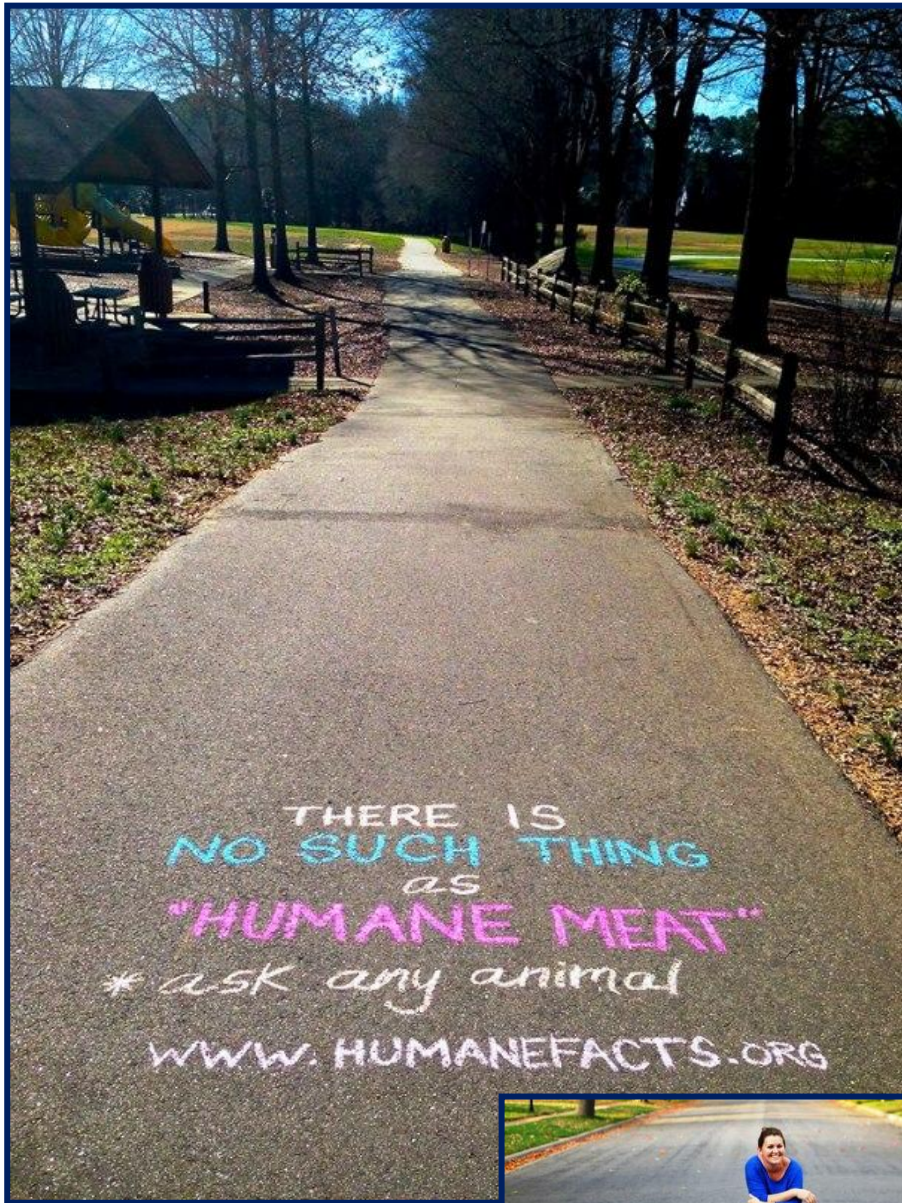 THERE IS
NO SUCH THING
as
"HUMANE MEAT"
* ask any animal
WWW.HUMANEFACTS.ORG